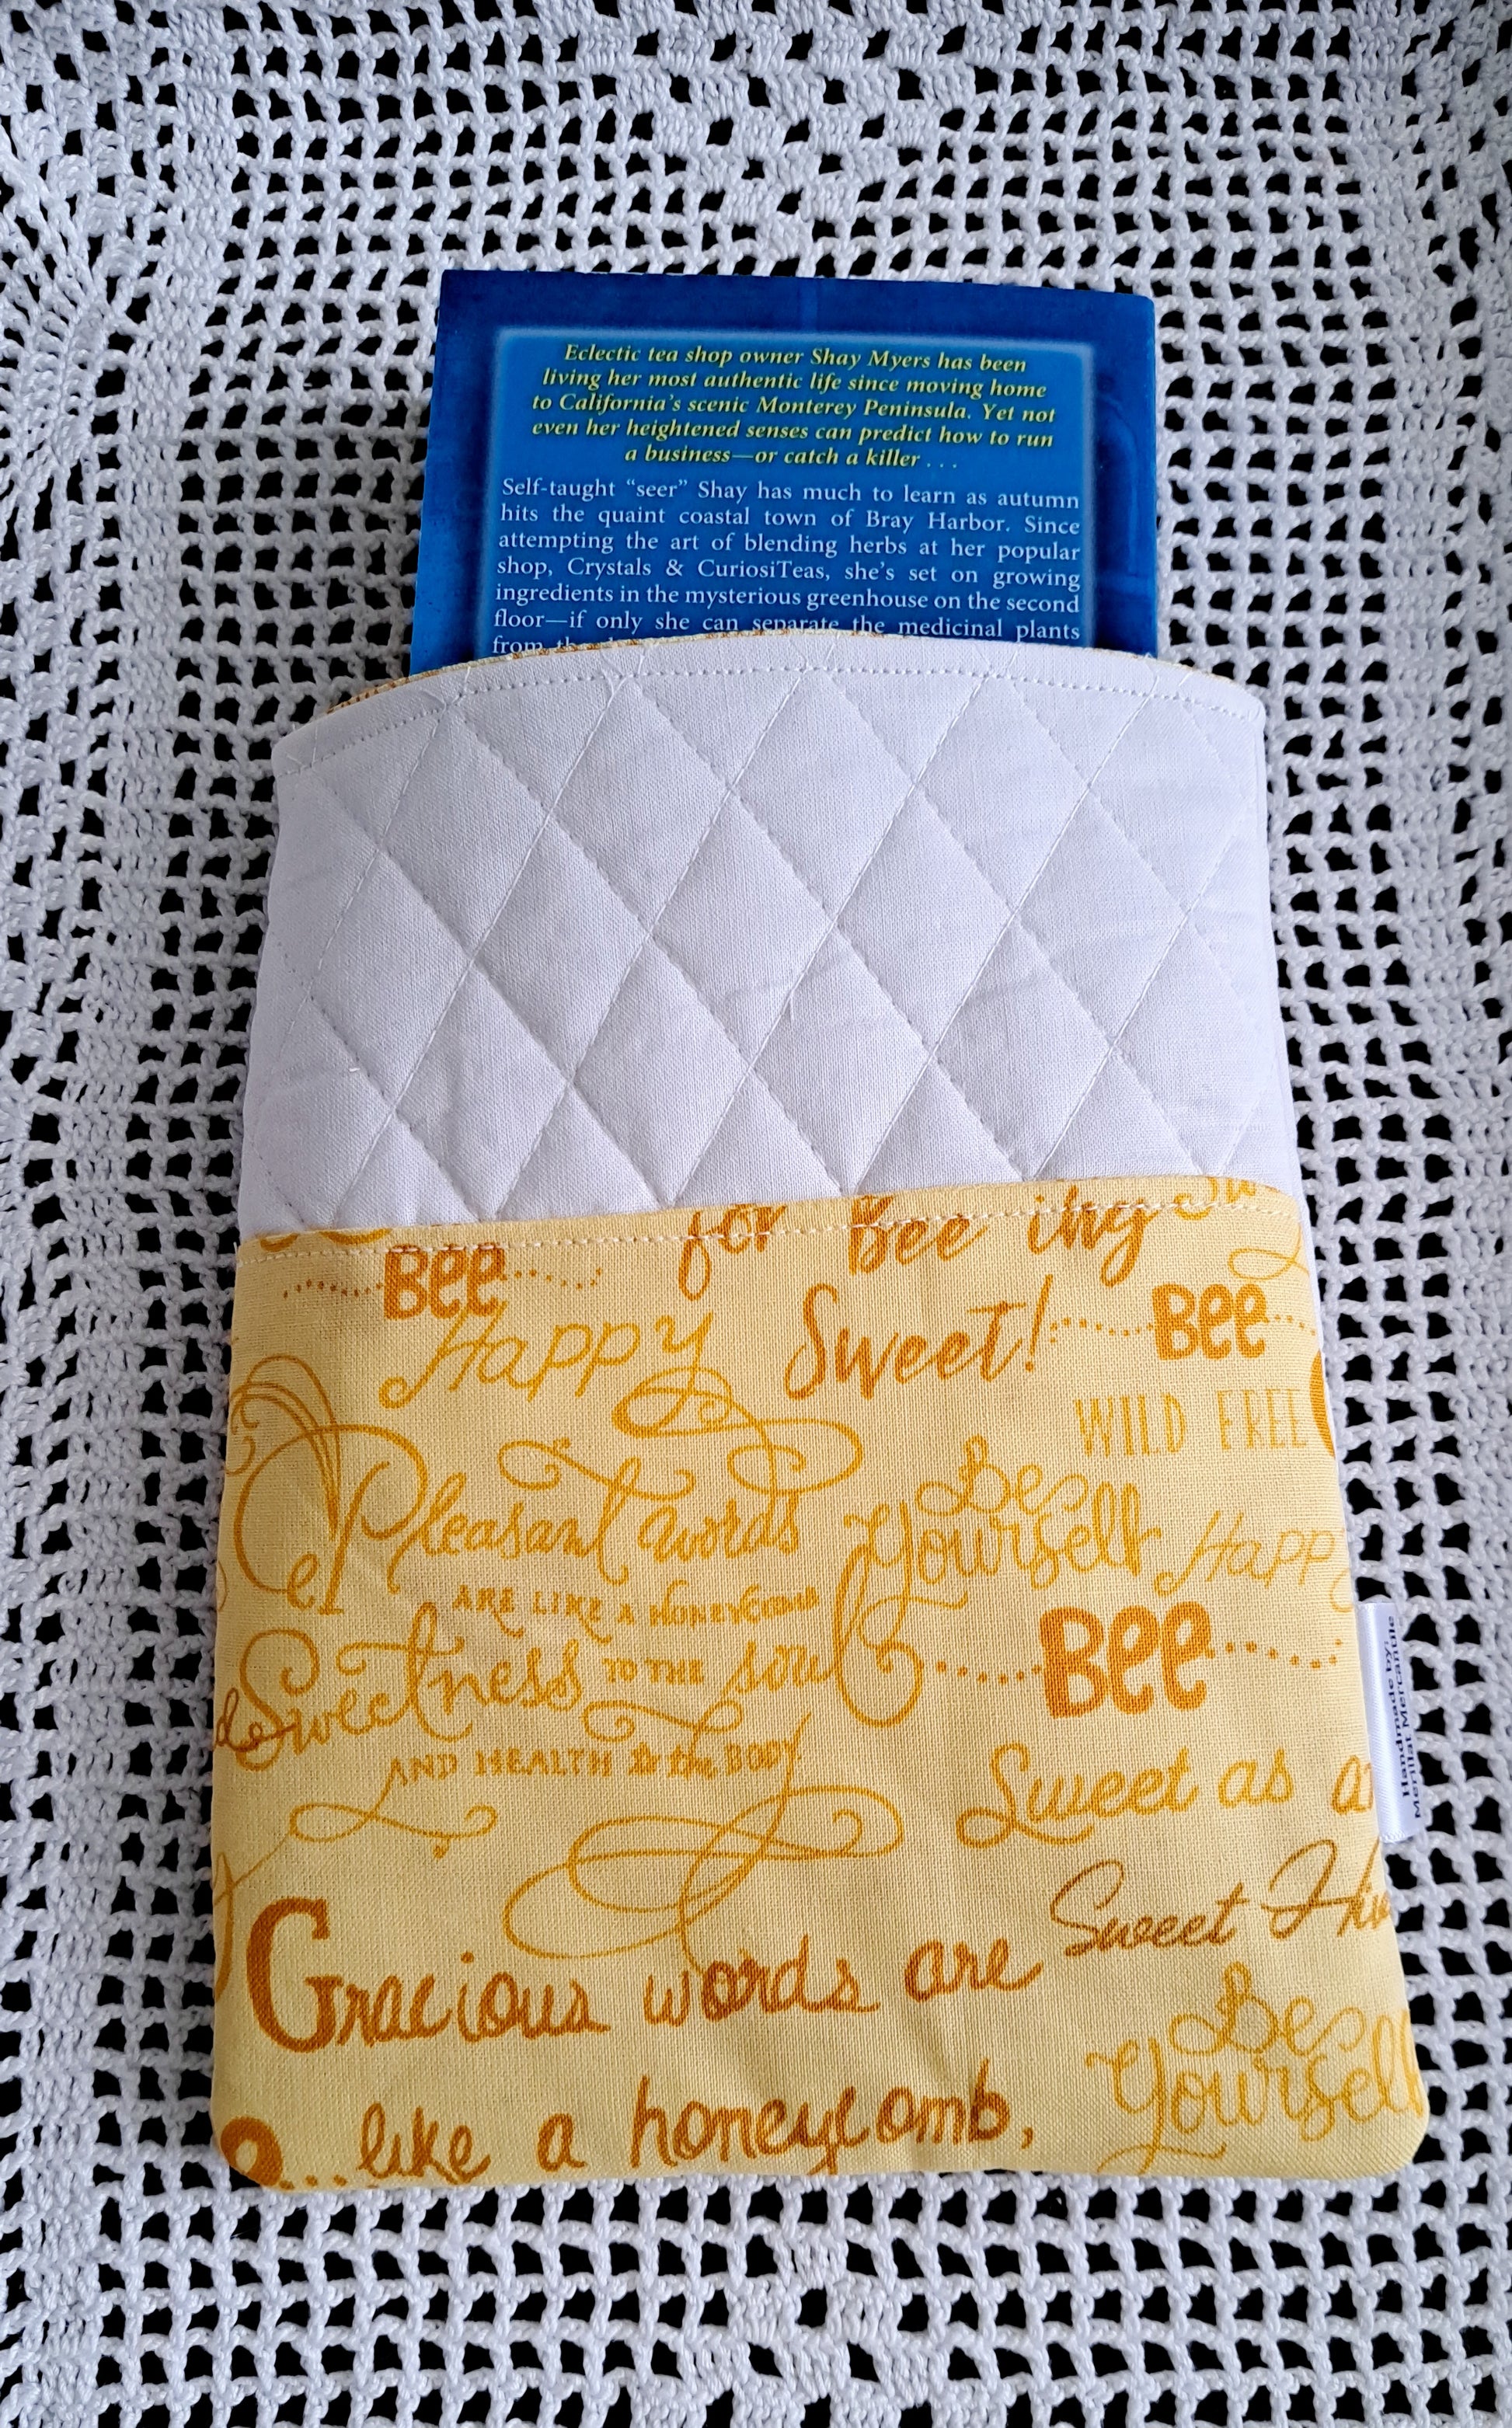 Eclectic tea shop owner Shay Myers has been
living her most authentic life since moving home
to California's scenic Monterey Peninsula. Yet not
even her heightened senses can predict how to run
a business—or catch a killer . . .
Self-taught "seer" Shay has much to learn as autumn
hits the quaint coastal town of Bray Harbor. Since
attempting the art of blending herbs at her popular
shop, Crystals & CuriosiTeas, she's set on growing
ingredients in the mysterious greenhouse on the second
floor—if only she can separate the medicinal plants
from
for Bee ing
Bee
Sweet!
Bee
Happy
WILD FREE
Pleasant words
Be
Yourself
Happy
ARE LIKE A HONEYCOMB
Bee
Sweetness TO THE soul
AND HEALTH to the BODY
Handmade by:
Merillat Mercantile
Sweet as
Sweet
Gracious words are
Be
Yourself
...like a honeycomb,